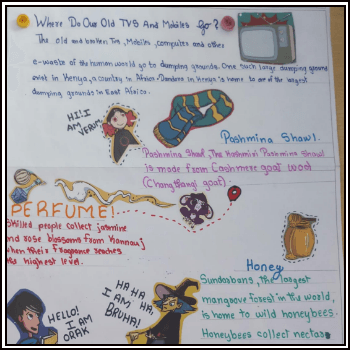 Where Do Our Old TVS And Mobiles Go?
The old and broken Tvs, Mobiles, computers and other
e-waste of the human world go to dumping grounds. One such large dumping ground
exist in Kenya, a country in Africa. Dandora in Kenya is home to one of the largest
dumping grounds in East Africa.
HI! I
AM
Pashmina Shawl.
Pashmina Shawl, The Kashmiri Pashmina Shawl
is made from Cashmere goat wool
(Changthangi goat)
PERFUME!
Skilled people collect jasmine
and rose blossoms from Kannauj
when their fragrance reaches
its highest level.
Honey
Sundarbans, the largest
mangrove forest in the world,
is home to wild honeybees.
Honeybees collect nectar
HELLO!
I AM
ORAK
HA HA
HA, HA,
I AM
BRUHA!